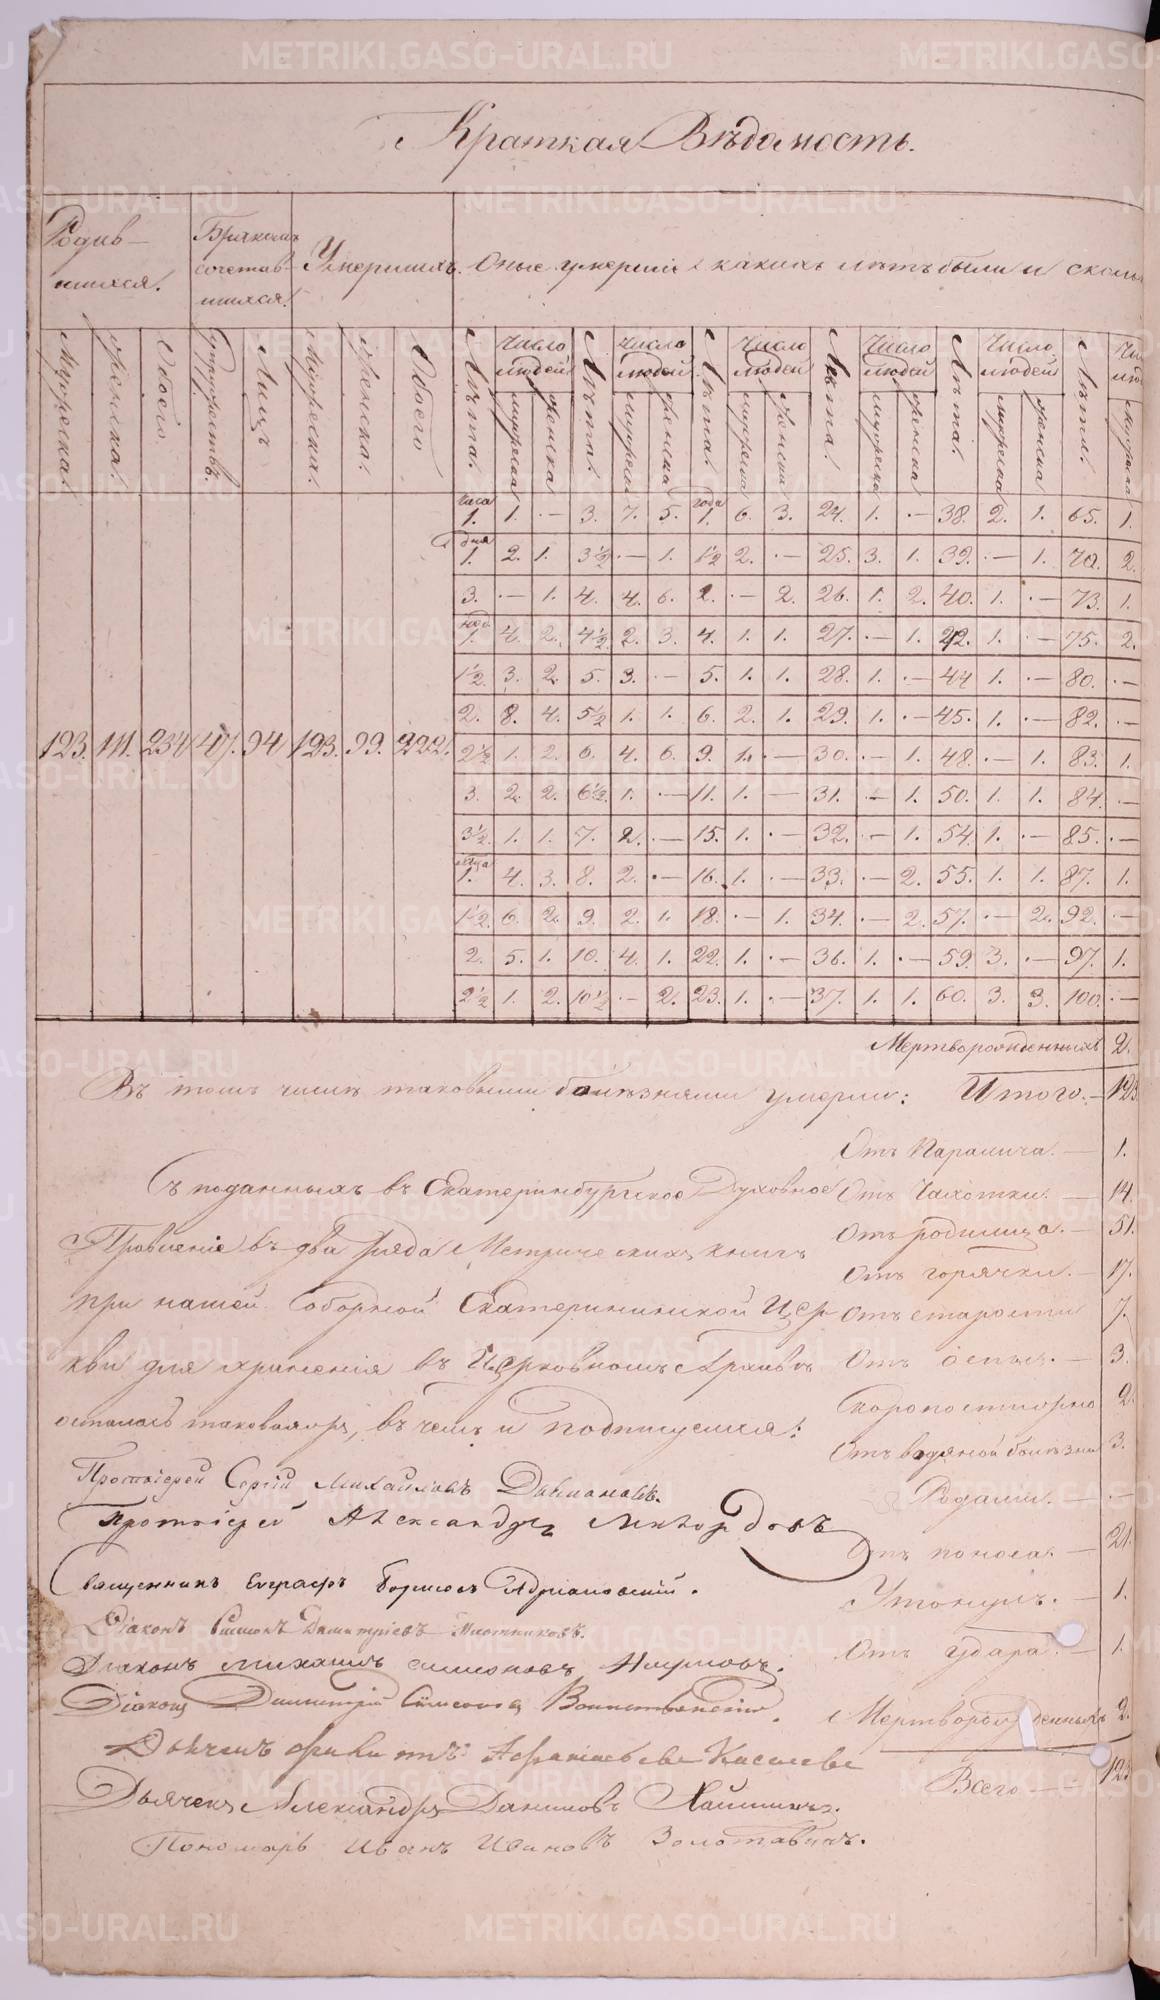 Краткая Вѣдомость.
Родив-
шихся.
Бракомъ
сочетав-
шихся.
Умершихъ.
Оные умершіе какихъ лѣтъ были и сколь
Мужеска.
Женска.
Обоего.
Супружествъ.
Лицъ.
Мужеска.
Женска.
Обоего
Лѣта.
Число людей
мужеска
женска
Лѣта.
Число людей
мужеска
женска
Лѣта.
Число людей
мужеска
женска
Лѣта.
Число людей
мужеска
женска
Лѣта.
Число людей
мужеска
женска
Лѣта.
мужеска
часа 1. 1. - 3. 7. 5. года 1. 6. 3. 24. 1. - 38. 2. 1. 65. 1.
дня 1. 2. 1. 3½ - 1. 1½ 2. - 25. 3. 1. 39. - 1. 70. 2.
3. - 1. 4. 4. 6. 2. - 2. 26. 1. 2. 40. 1. - 73. 1.
1. 4. 2. 4½ 2. 3. 4. 1. 1. 27. - 1. 42. 1. - 75. 2.
1½ 3. 2. 5. 3. - 5. 1. 1. 28. 1. - 44 1. - 80. -
2. 8. 4. 5½ 1. 1. 6. 2. 1. 29. 1. - 45. 1. - 82. -
123. 111. 234 47. 94 123. 99. 222.
2½ 1. 2. 6. 4. 6. 9. 1. - 30. - 1. 48. - 1. 83. 1.
3. 2. 2. 6½ 1. - 11. 1. - 31. - 1. 50. 1. 1. 84. -
3½ 1. 1. 7. 2. - 15. 1. - 32. - 1. 54. 1. - 85. -
1. 4. 3. 8. 2. - 16. 1. - 33. - 2. 55. 1. 1. 87. 1.
1½ 6. 2. 9. 2. 1. 18. - 1. 34. - 2. 57. - 2. 92. -
2. 5. 1. 10. 4. 1. 22. 1. - 36. 1. - 59. 3. - 97. 1.
2½ 1. 2. 10½ - 2. 23. 1. - 37. 1. 1. 60. 3. 3. 100. -
Мертворожденныхъ 2.
Въ томъ числѣ таковыми болѣзнями умерли: Итого. - 123
Отъ Паралича. - 1.
Отъ Чахотки. - 14.
Отъ родимца. - 51.
Отъ горячки. - 17.
Отъ старости 7.
Отъ оспы. - 3.
Скоропостижно 2.
Отъ водяной болѣзни 3.
Родами. - -
Отъ поноса. - 21.
Утонулъ. - 1.
Отъ удара. - 1.
Мертворожденныхъ 2.
Всего - 123
Съ поданныхъ въ Екатеринбургское Духовное
Правленіе въ два ряда Метрическихъ книгъ
при нашей Соборной Екатерининской Цер
кви для храненія въ Церковномъ Архивѣ
осталась таковаяжъ, въ чемъ и подпишемся:
Протоіерей Сергій Михайловъ
Протоіерей Александръ
Священникъ Евграфъ Борисовъ Адріановскій.
Діаконъ Симеонъ Димитріевъ Плотниковъ.
Діаконъ Михаилъ Симеоновъ
Діаконъ Димитрій Симеоновъ
Дьячекъ
Дьячекъ Александръ Даниловъ
Пономарь Иванъ Ивановъ Золотавинъ.
METRIKI.GASO-URAL.RU